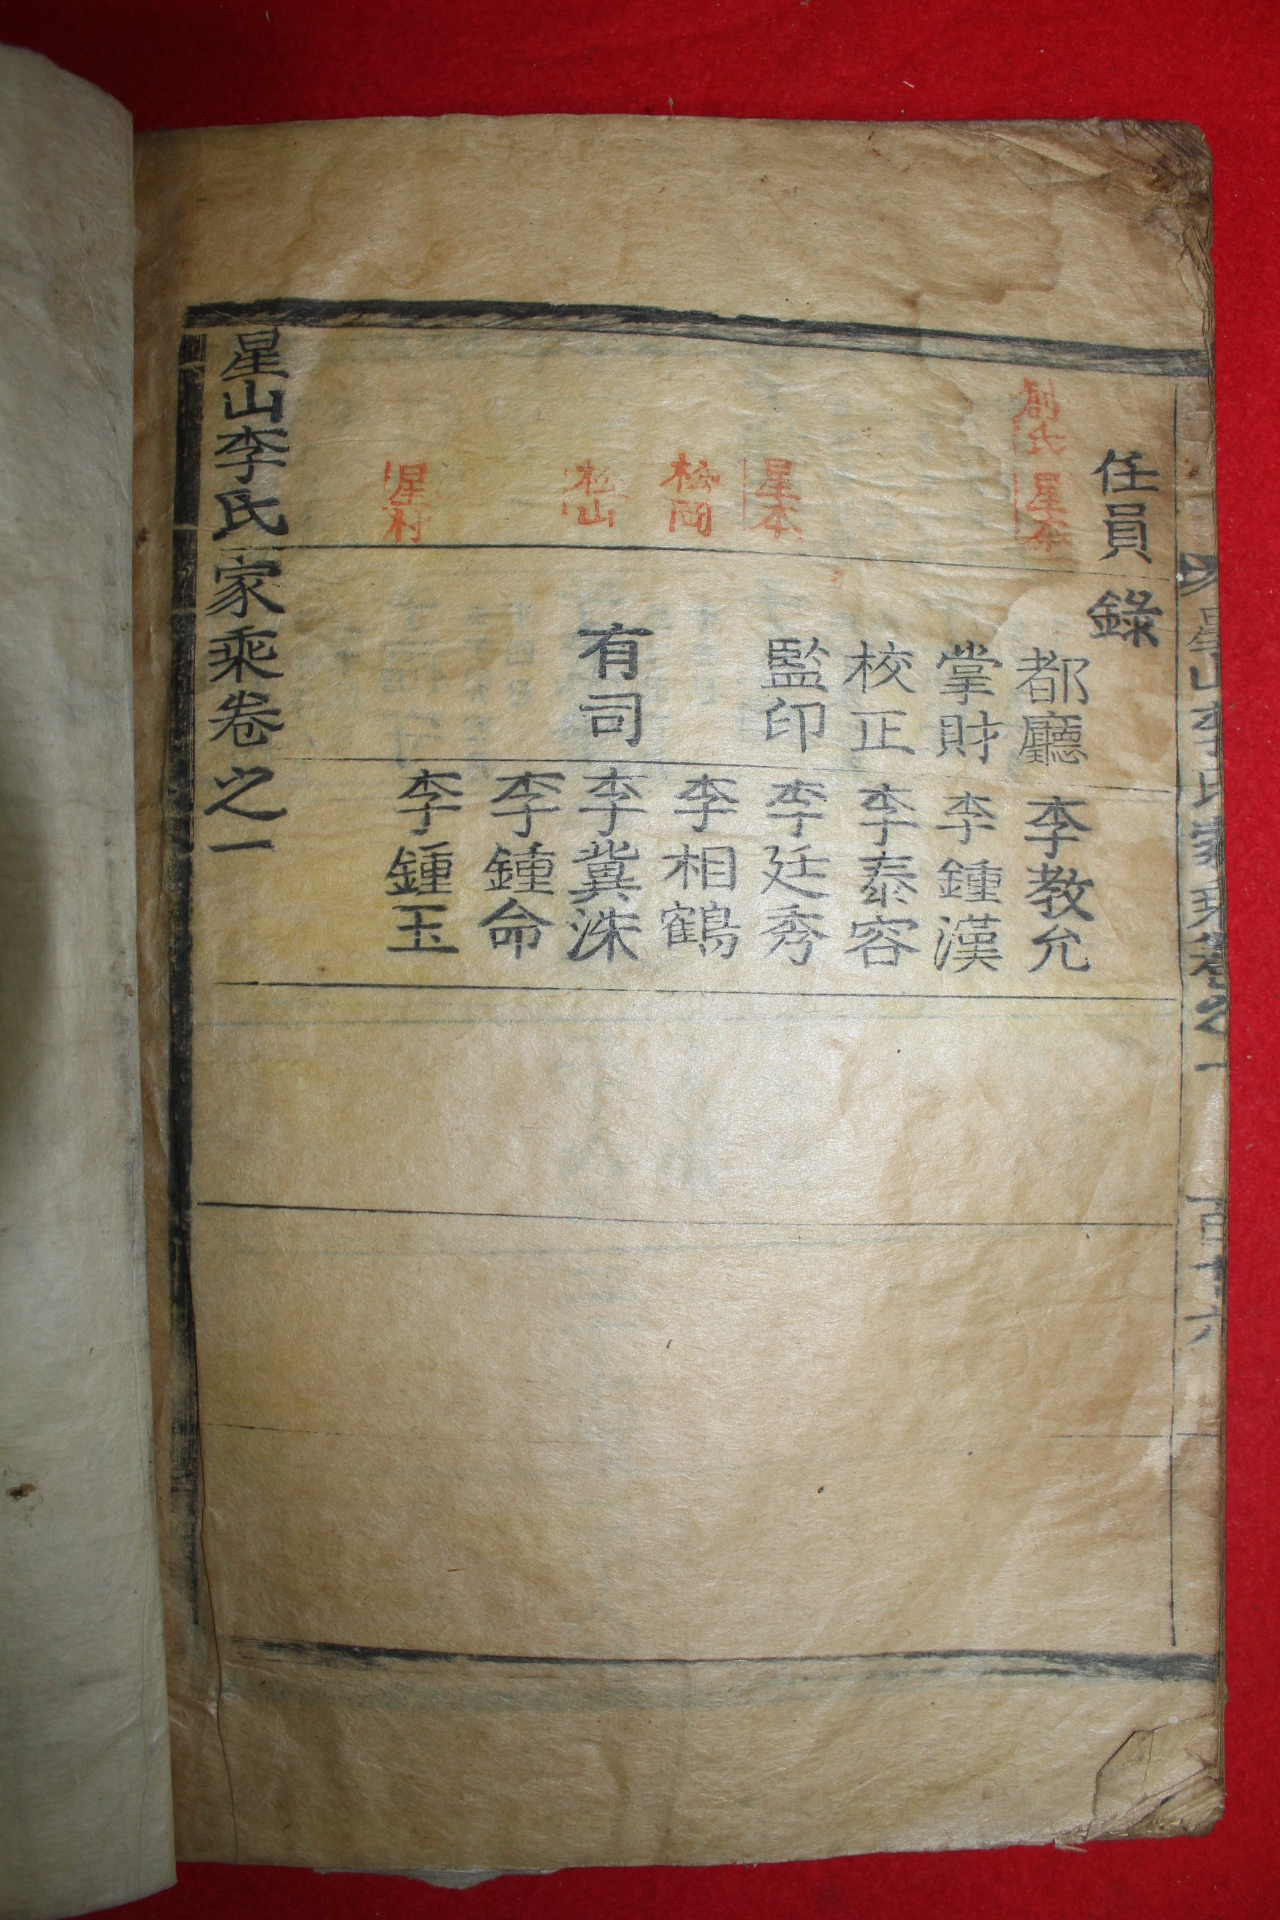 星山李氏家乘卷之一
任員錄
創氏 星本
都廳 李教允
掌財 李鍾漢
校正 李泰容
星本
監印 李廷秀
松岡
李相鶴
松山
有司 李冀洙
李鍾命
星村
李鍾玉
星山李氏家乘卷之一